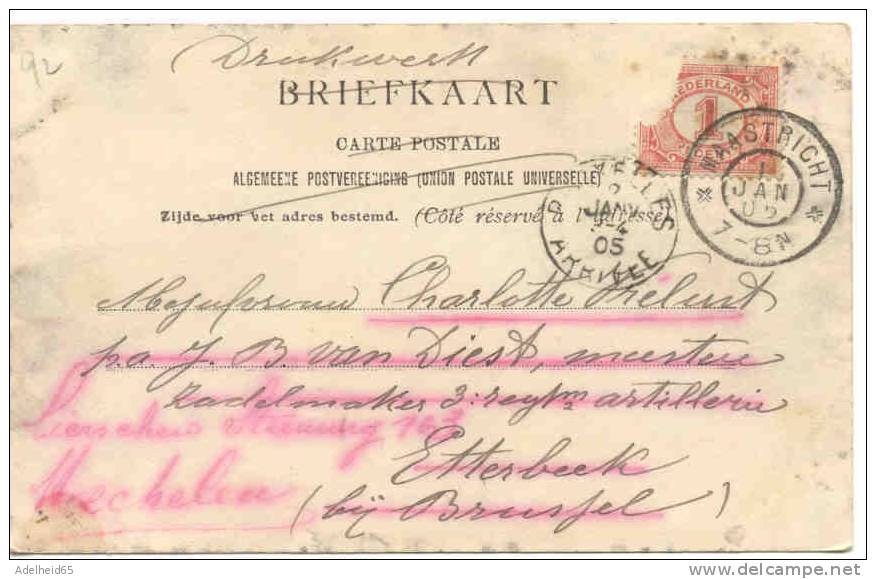 92
Drukwerk
BRIEFKAART
CARTE POSTALE
ALGEMEENE POSTVEREENIGING (UNION POSTALE UNIVERSELLE)
Zijde voor het adres bestemd. (Côté réservé à l'adresse)
NEDERLAND
1
MAASTRICHT
1
JAN
05
7-8N
2
JANV
3-4
05
ARRIVEE
Mejufvrouw Charlotte
p.a. J. B. van Diest, meester
zadelmaker 3: regt artillerie
Liersche steenweg 167
Etterbeek
Mechelen
(bij Brussel)
delcampe.net
Adelheid65